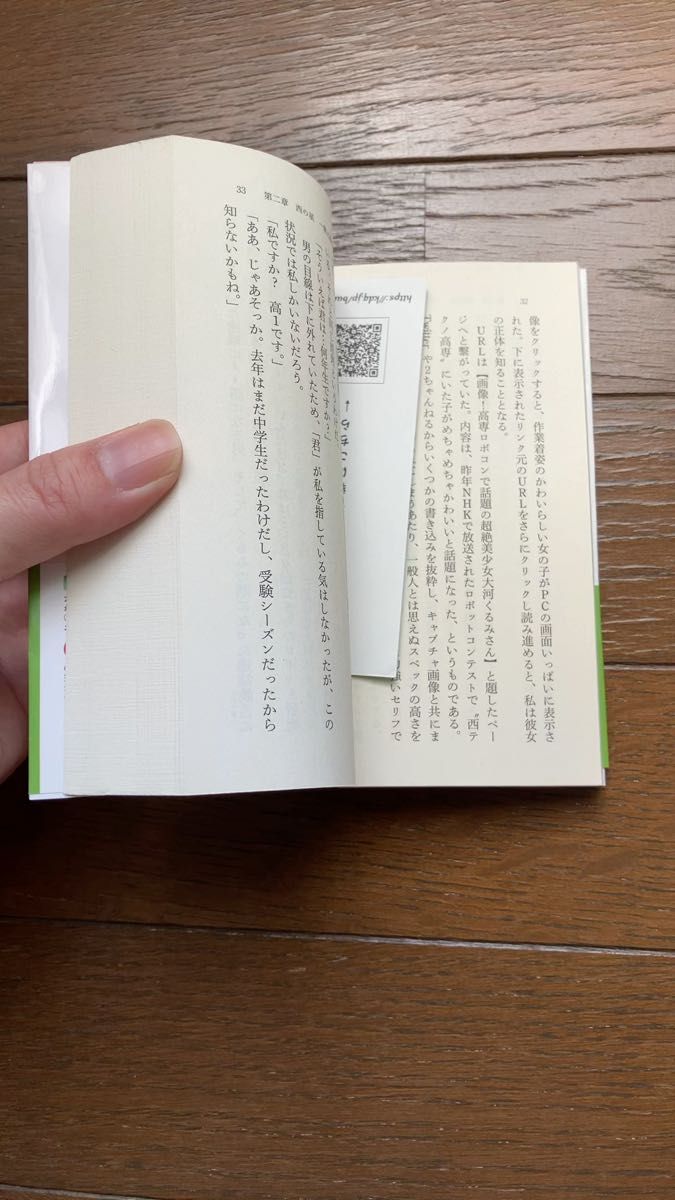 32
像をクリックすると、作業着姿のかわいらしい女の子がPCの画面いっぱいに表示さ
れた。下に表示されたリンク元のURLをさらにクリックし読み進めると、私は彼女
の正体を知ることとなる。
URLは【画像!高専ロボコンで話題の超絶美少女大河くるみさん】と題したペー
ジへと繋がっていた。内容は、昨年NHKで放送されたロボットコンテストで〝西テ
クノ高専〟にいた子がめちゃめちゃかわいいと話題になった、というものである。
や2ちゃんねるからいくつかの書き込みを抜粋し、キャプチャ画像と共にま
あたり、一般人とは思えぬスペックの高さを
強いセリフで
https://kdq.jp/bu
33 第二章 西の星
「そういえば君は、何年生ですか?」
男の目線は下に外れていたため、「君」が私を指している気はしなかったが、この
状況では私しかいないだろう。
「私ですか? 高1です。」
「ああ、じゃあそっか。去年はまだ中学生だったわけだし、受験シーズンだったから
知らないかもね。」